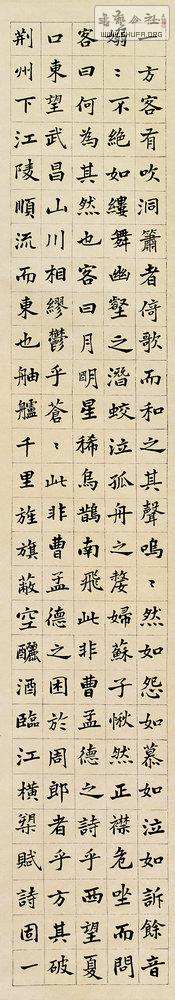 一方客有吹洞簫者倚歌而和之其聲嗚〻然如怨如慕如泣如訴餘音
嫋〻不絕如縷舞幽壑之潛蛟泣孤舟之嫠婦蘇子愀然正襟危坐而問
客曰何為其然也客曰月明星稀烏鵲南飛此非曹孟德之詩乎西望夏
口東望武昌山川相繆鬱乎蒼〻此非曹孟德之困於周郎者乎方其破
荊州下江陵順流而東也舳艫千里旌旗蔽空釃酒臨江橫槊賦詩固一
WWW.SHUFA.ORG